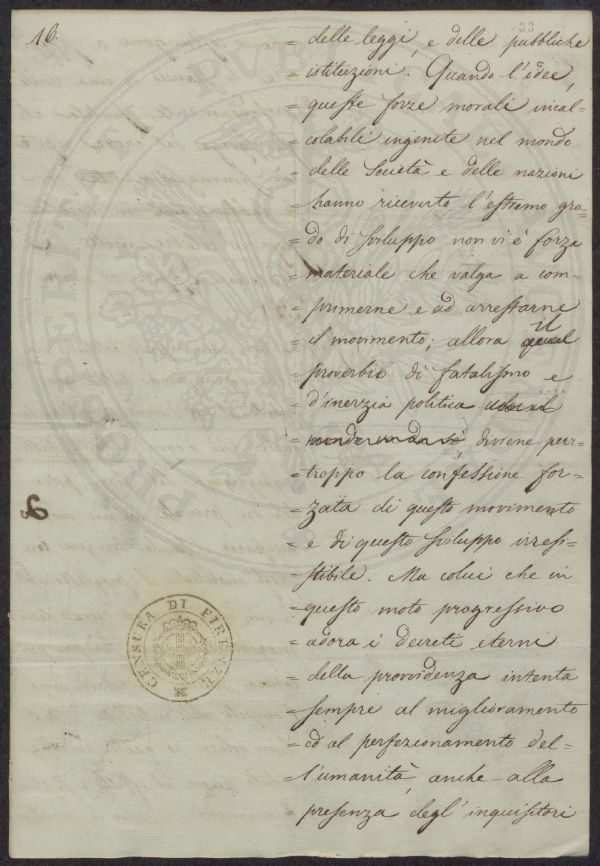 16.
33
= delle leggi, e delle pubbliche
= istituzioni. Quando l'idee,
= queste forze morali incal-
= colabili ingenite nel mondo
= delle Società e delle nazioni
= hanno ricevuto l'estremo gra-
= do di sviluppo non vi è forza
= materiale che valga a com-
= primerne e ad arrestarne
= il movimento; allora il
= proverbio di fatalismo e
= d'inerzia politica
= diviene pur-
= troppo la confessione for-
= zata di questo movimento
= e di questo sviluppo irresi-
= stibile. Ma colui che in
= questo moto progressivo
= adora i decreti eterni
= della provvidenza intenta
= sempre al miglioramento
= ed al perfezionamento del-
= l'umanità, anche alla
= presenza degl'inquisitori
CENSURA DI FIRENZE